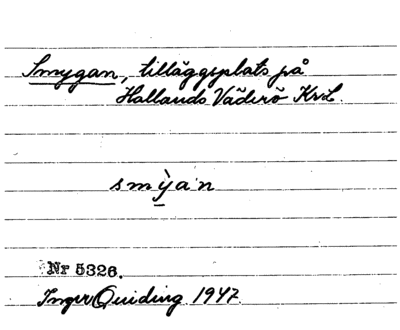 Smygan, tilläggsplats på
Hallands Väderö KrL.
smỳ̠an
Nr 5326.
Inger Quiding 1947.